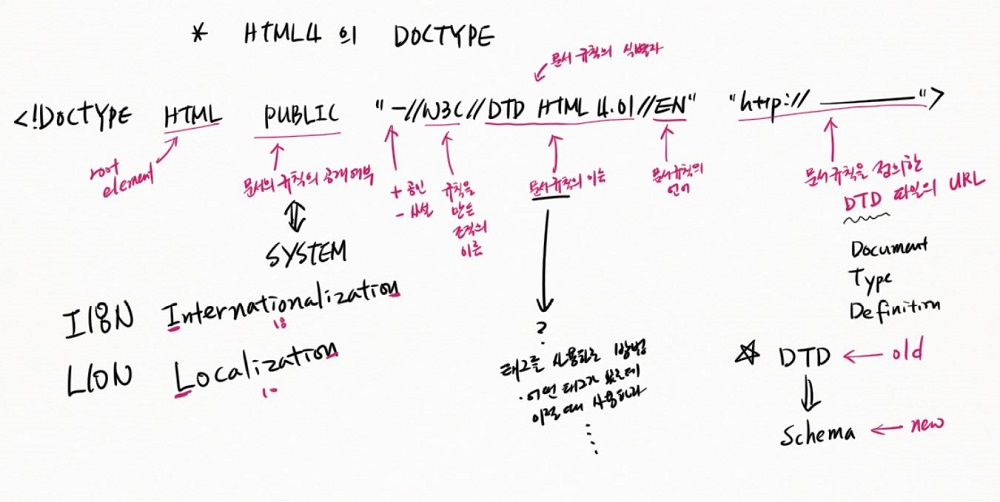 * HTML4의 DOCTYPE
문서 규칙의 식별자
<!DOCTYPE HTML PUBLIC "-//W3C//DTD HTML 4.01//EN" "http:// ________">
root
element
문서의 규칙의 공개 여부
+ 공인
- 사설
규칙을
만든
조직의
이름
문서규칙의 이름
문서규칙의
언어
문서규칙을 정의한
DTD 파일의 URL
SYSTEM
Document
Type
Definition
I18N Internationalization
18
L10N Localization
10
?
태그를 사용하는 방법
어떤 태그가 있는데
이럴 때 사용하라
* DTD ← old
Schema ← new